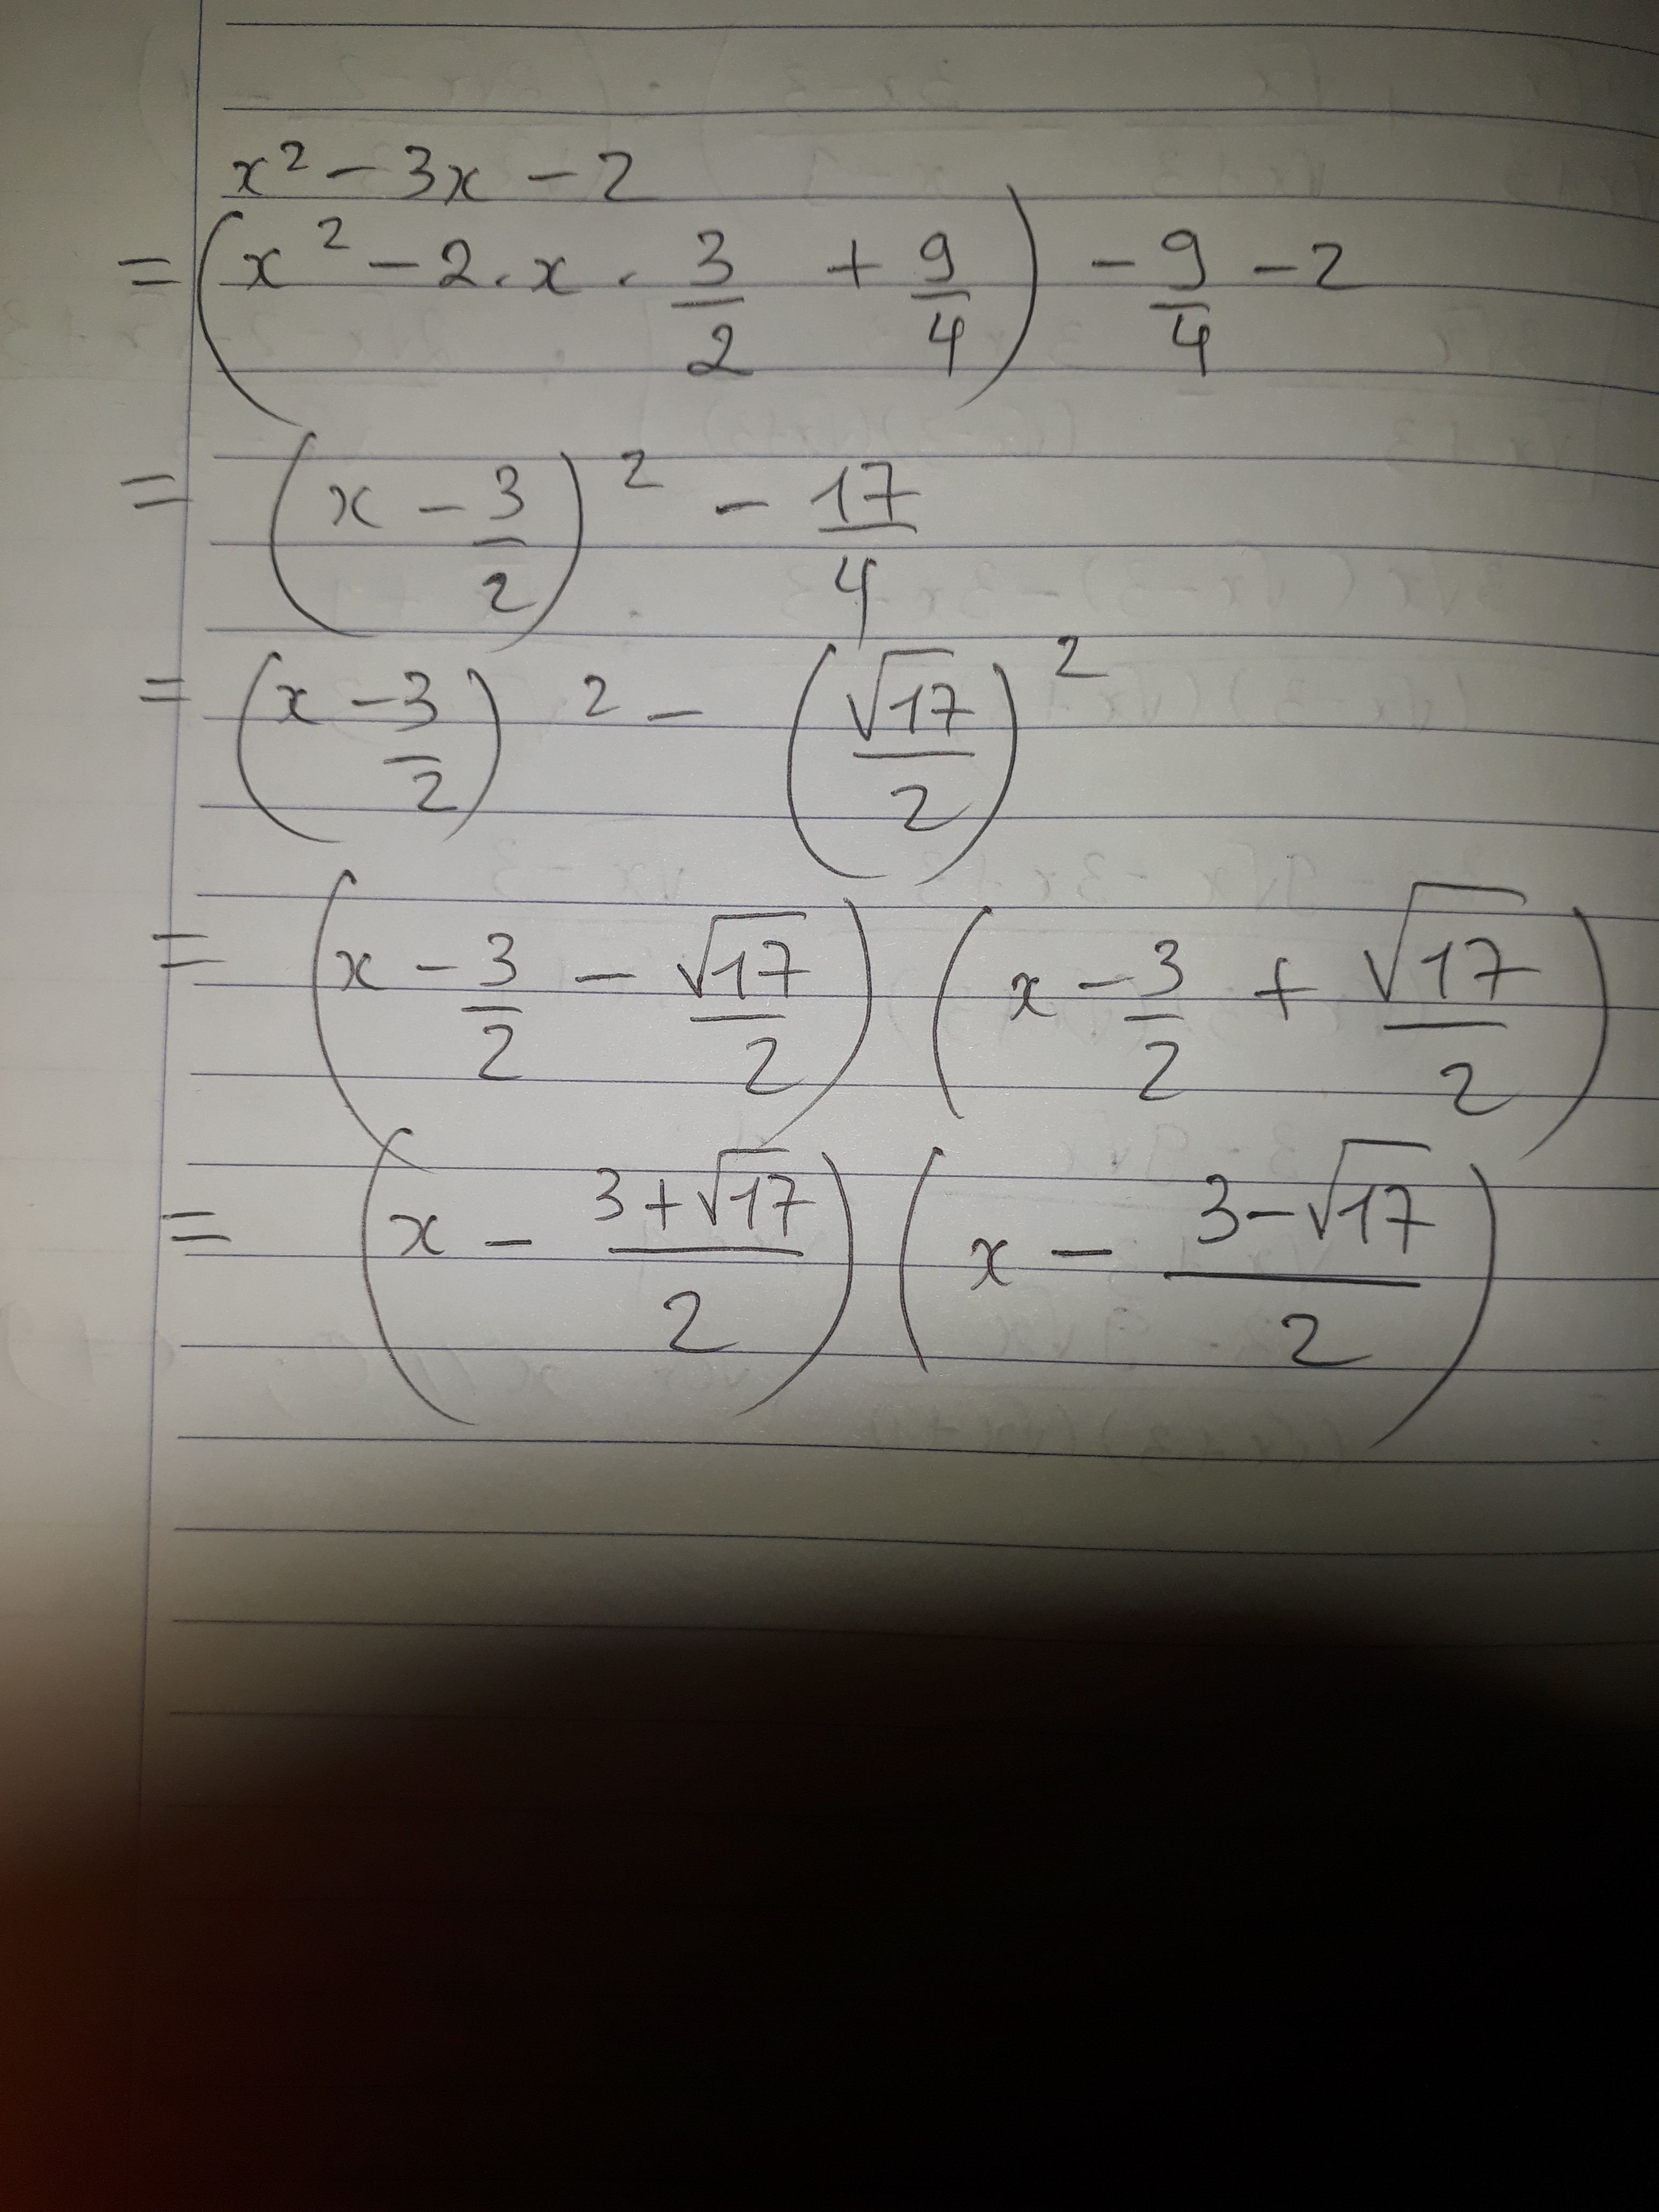 x² - 3x - 2
= (x² - 2 . x . 3/2 + 9/4) - 9/4 - 2
= (x - 3/2)² - 17/4
= (x - 3/2)² - (√17/2)²
= (x - 3/2 - √17/2) (x - 3/2 + √17/2)
= (x - (3+√17)/2) (x - (3-√17)/2)